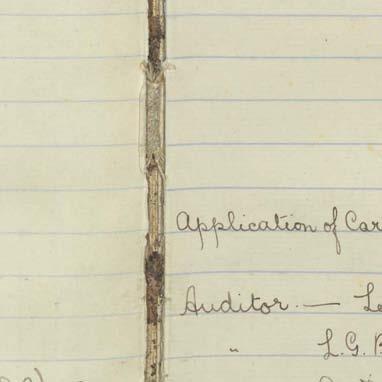 Application of Car
Auditor — Le
" L.G. B